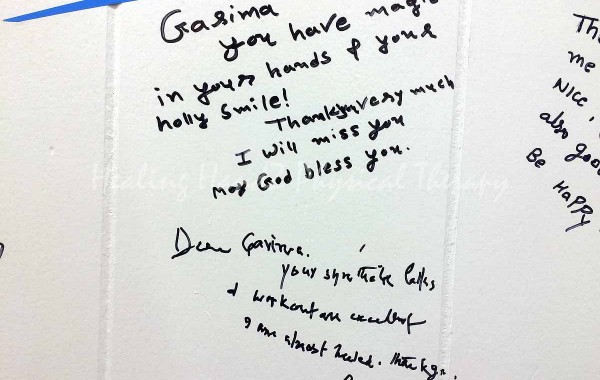 Garima
you have magic
in your hands & your
holly smile!
Thankyou very much
I will miss you
may God bless you.
Dear Garima.
your
& workout are excellent
I am almost healed. thank you.
Th
me
Nice,
also good
Be HaPPy
Healing Physical Therapy